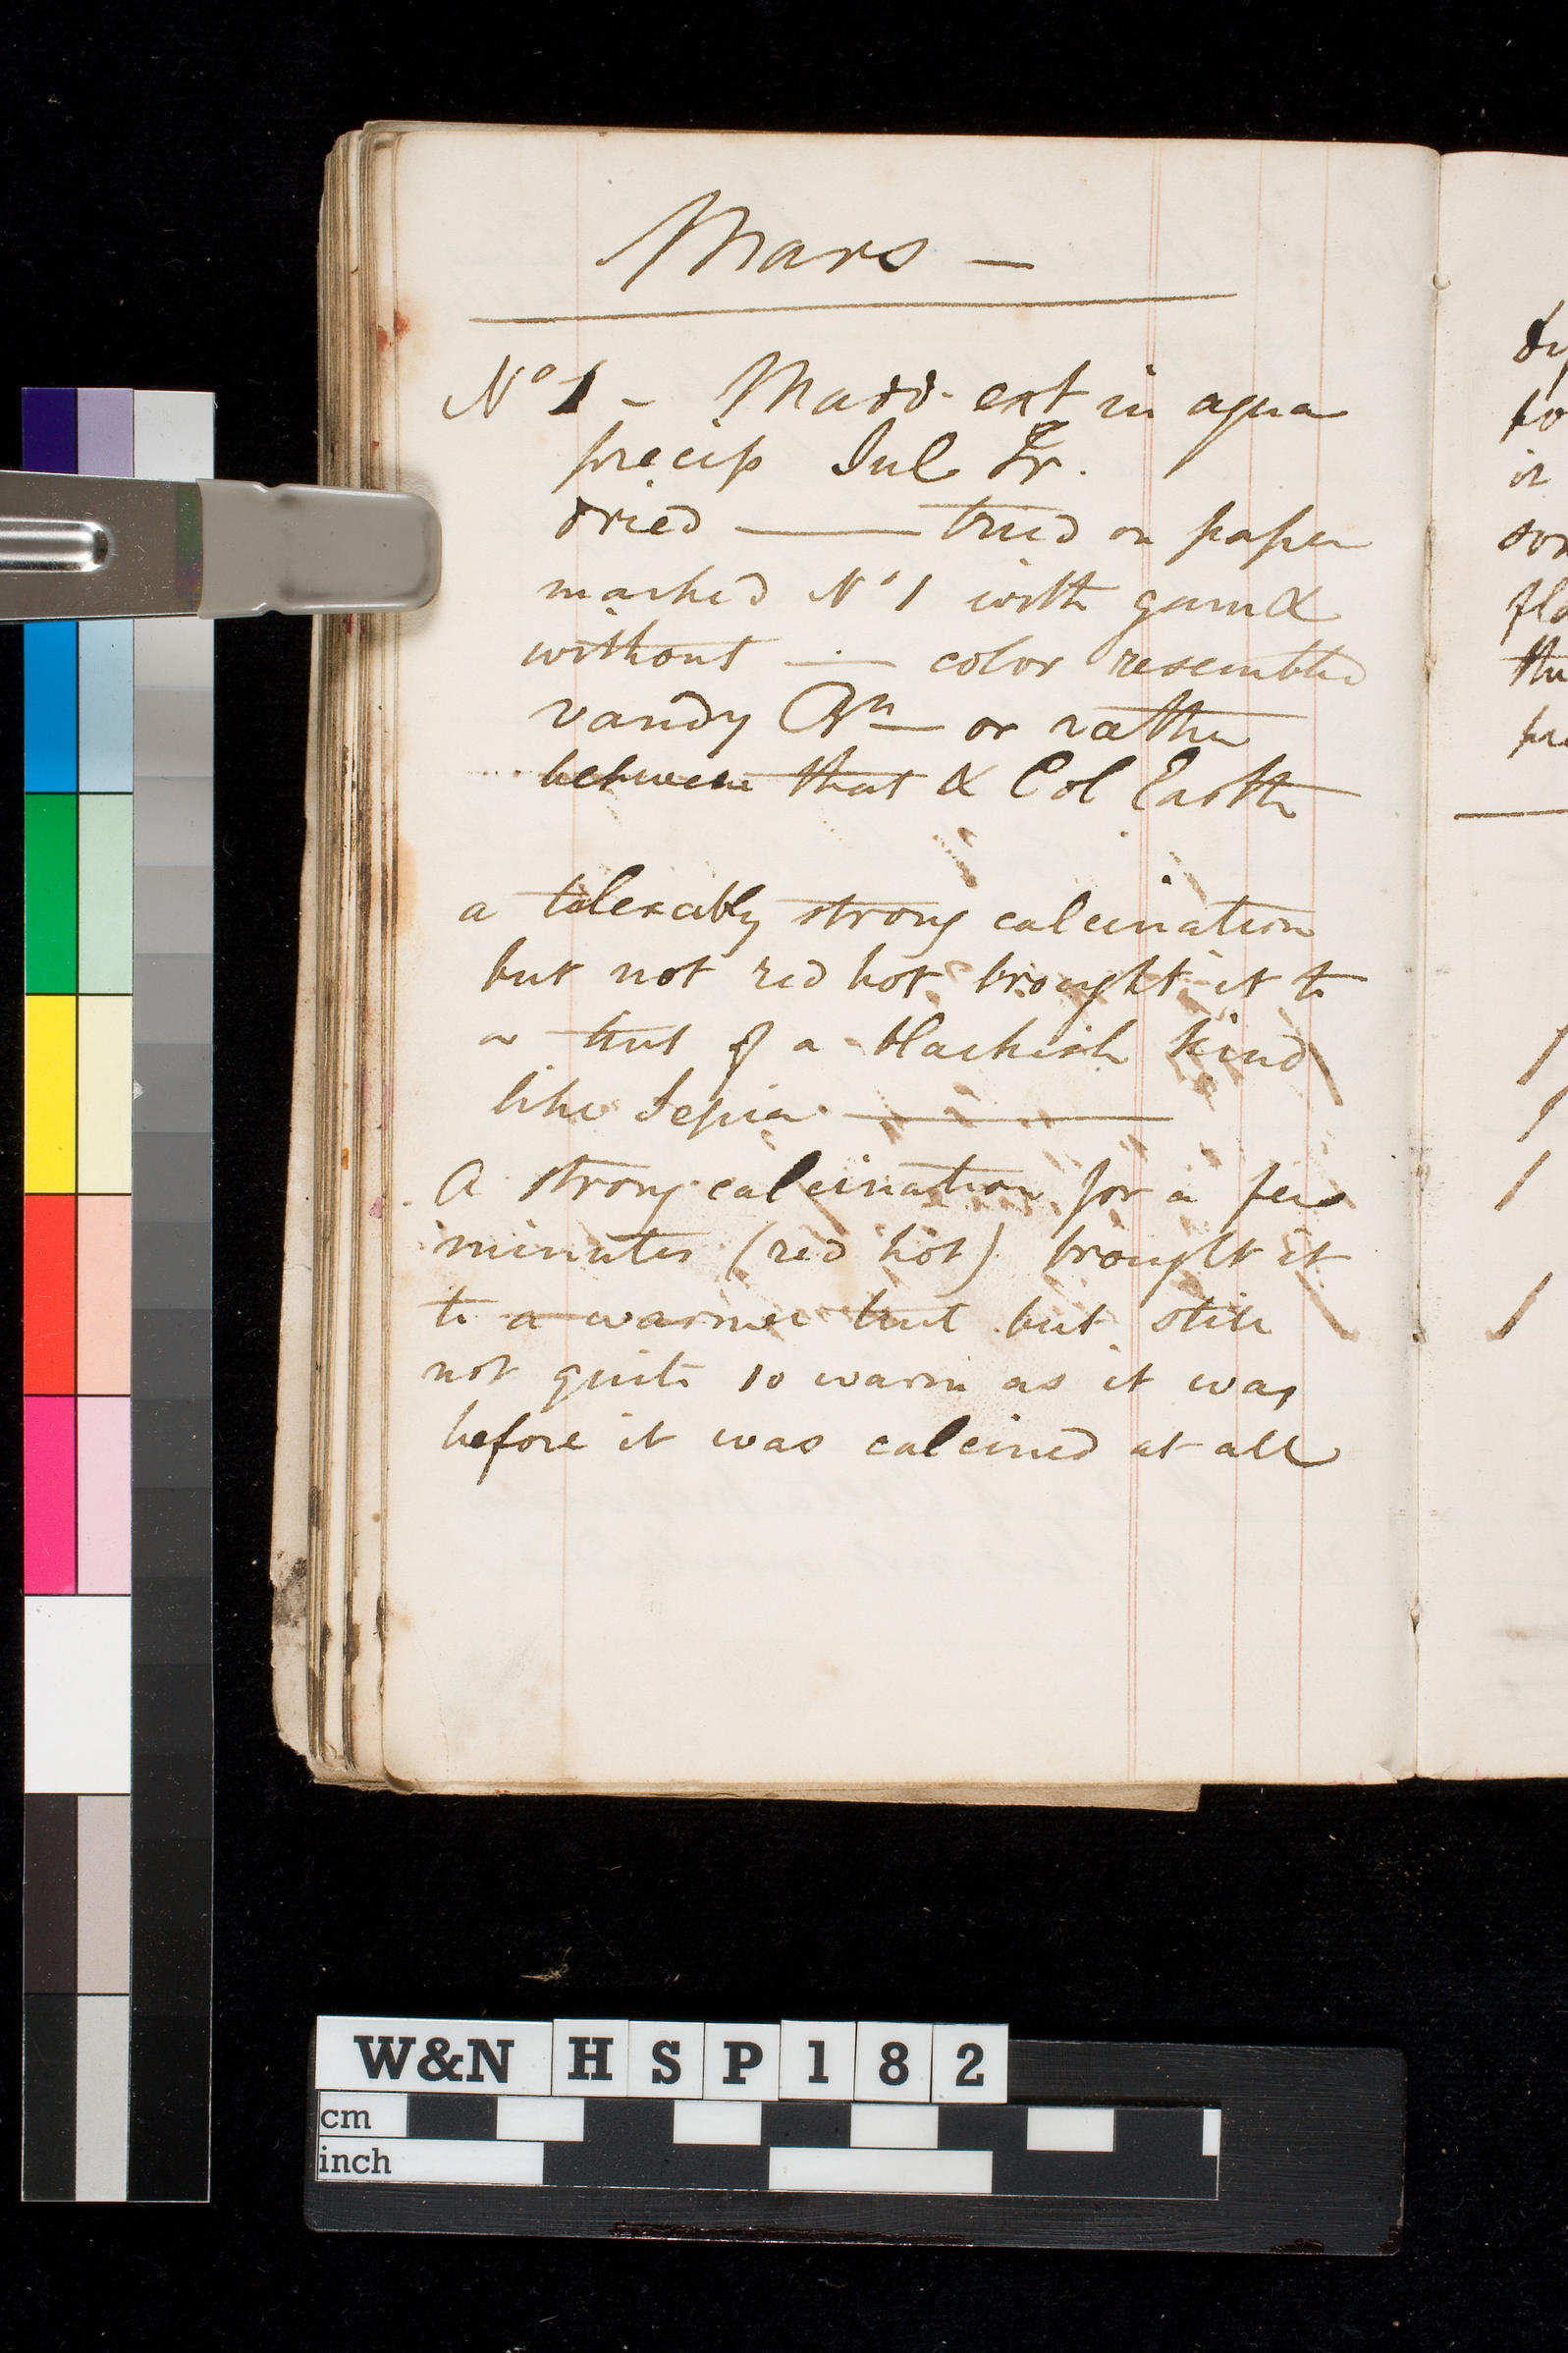 Mars —
No 1 - Madd. ext in aqua
precip Sul Fr.
dried — tried on paper
marked No 1 with gum &
without — color resembled
vandy Bn — or rather
between that & Col Earth
a tolerably strong calcination
but not red hot brought it to
a tint of a blackish kind
like Sepia —
A strong calcination for a few
minutes (red hot) brought it
to a warmer tint but still
not quite so warm as it was
before it was calcined at all
W&N HSP182
cm
inch